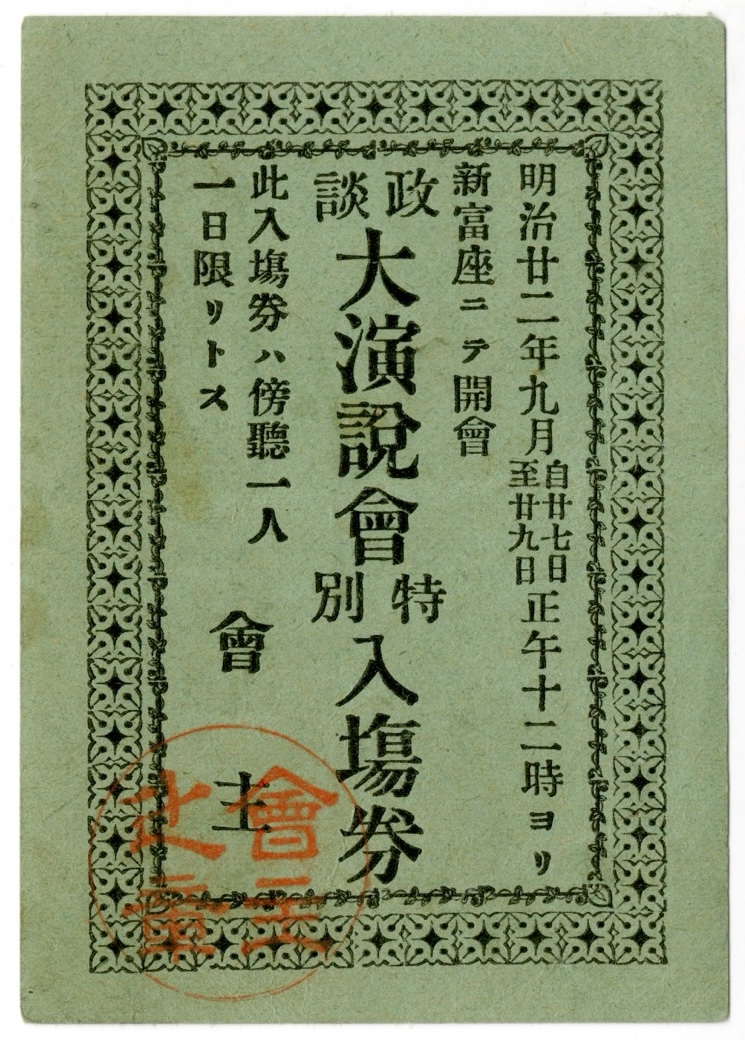 明治廿二年九月自廿七日至廿九日正午十二時ヨリ
新富座ニテ開會
政談大演説會特別入塲券
此入塲券ハ傍聽一人
一日限リトス
會主
會主之章